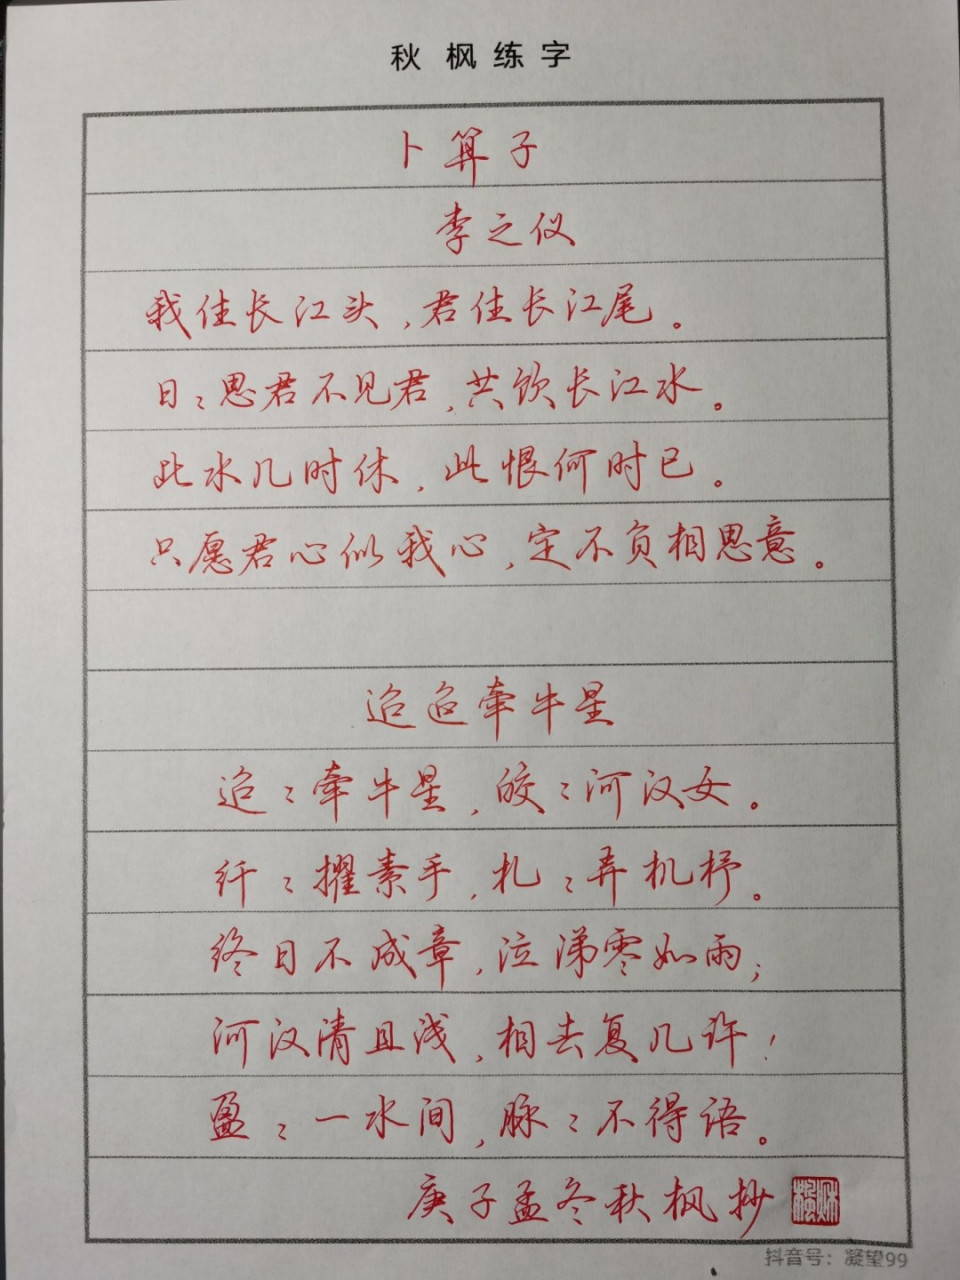 秋枫练字
卜算子
李之仪
我住长江头,君住长江尾。
日:思君不见君,共饮长江水。
此水几时休,此恨何时已。
只愿君心似我心,定不负相思意。
迢迢牵牛星
迢:牵牛星,皎:河汉女。
纤:擢素手,札:弄机杼。
终日不成章,泣涕零如雨;
河汉清且浅,相去复几许!
盈:一水间,脉:不得语。
庚子孟冬秋枫抄
抖音号:凝望99